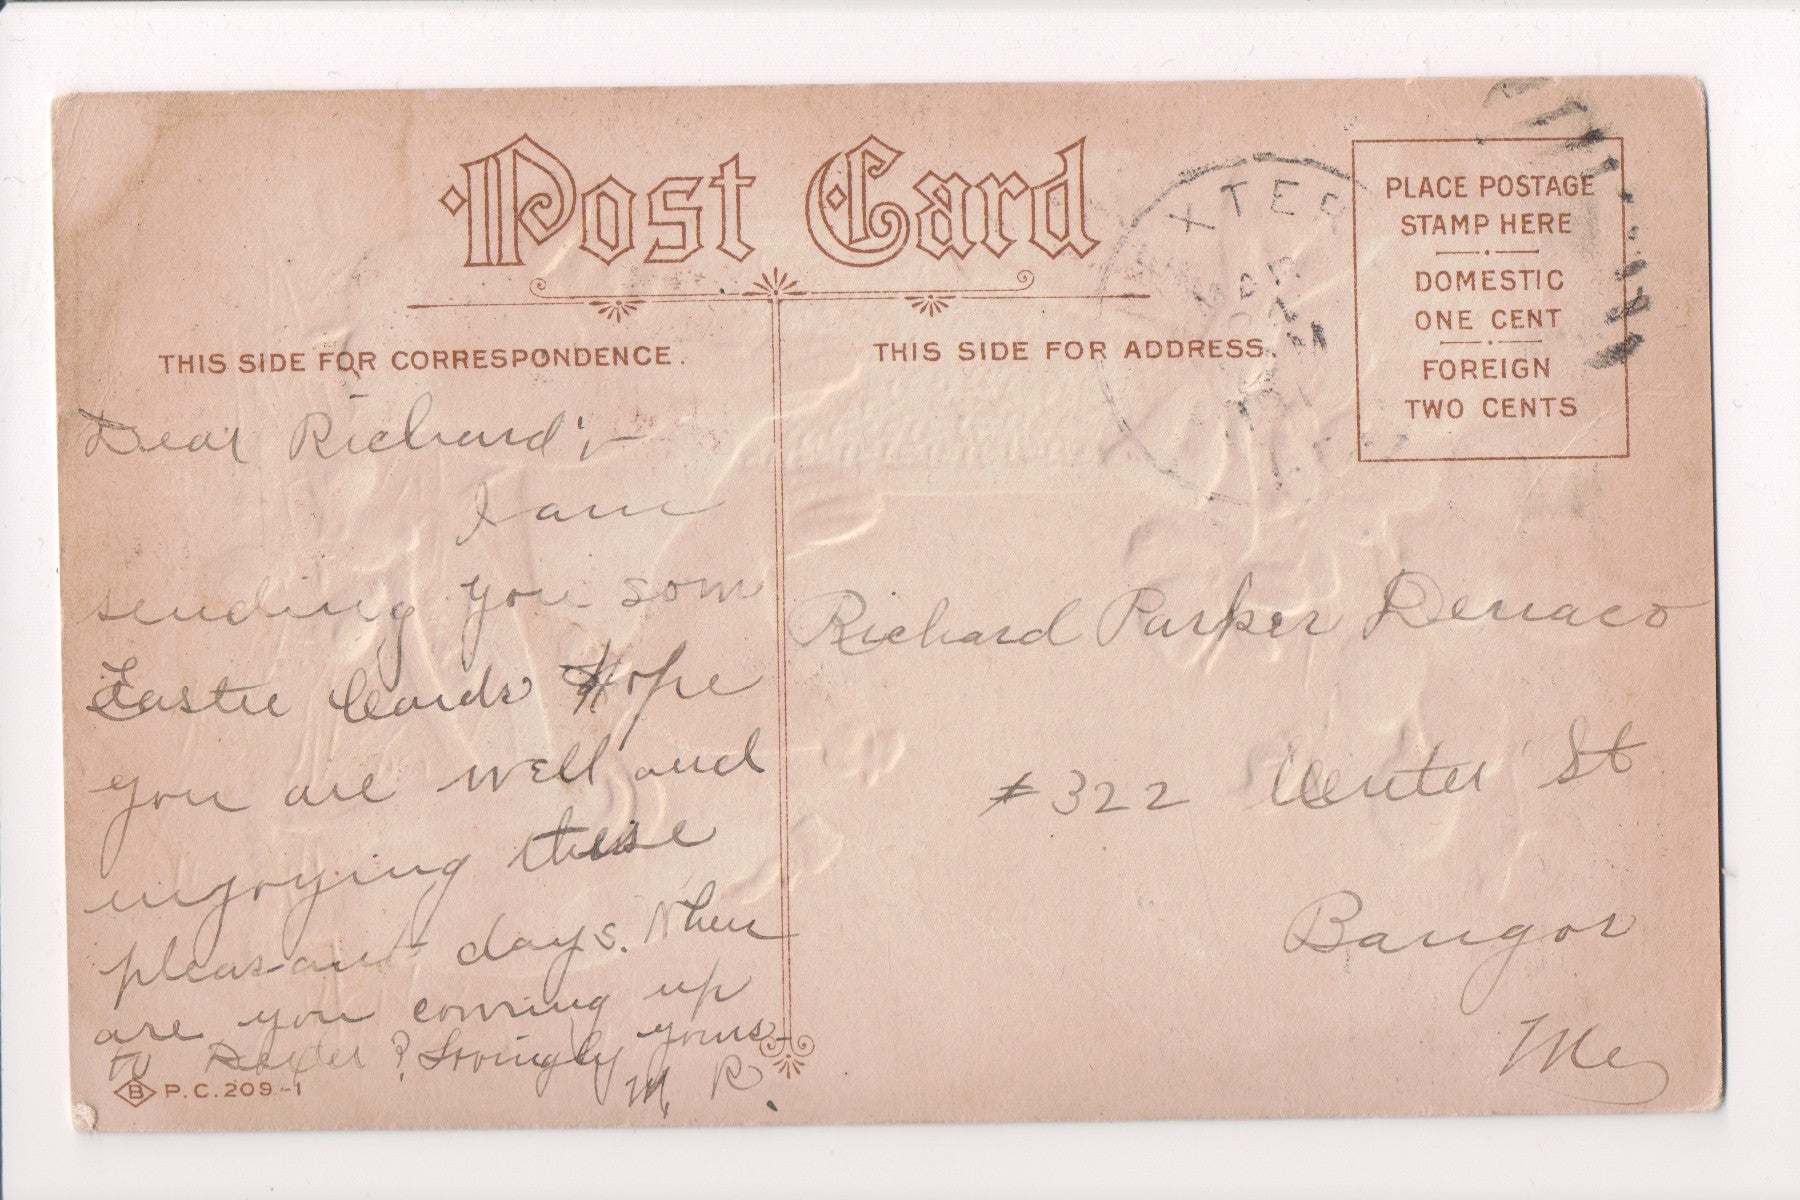 Post Card
THIS SIDE FOR CORRESPONDENCE.
THIS SIDE FOR ADDRESS.
PLACE POSTAGE
STAMP HERE
DOMESTIC
ONE CENT
FOREIGN
TWO CENTS
XTER
APR
Dear Richard;-
I am
sending you som
Easter Cards Hope
you are well and
enjoying these
pleasant days. When
are you coming up
to Dexter? Lovingly yours
M. R.
Richard Parker
#322 Center St
Bangor
Me
B P.C. 209-1